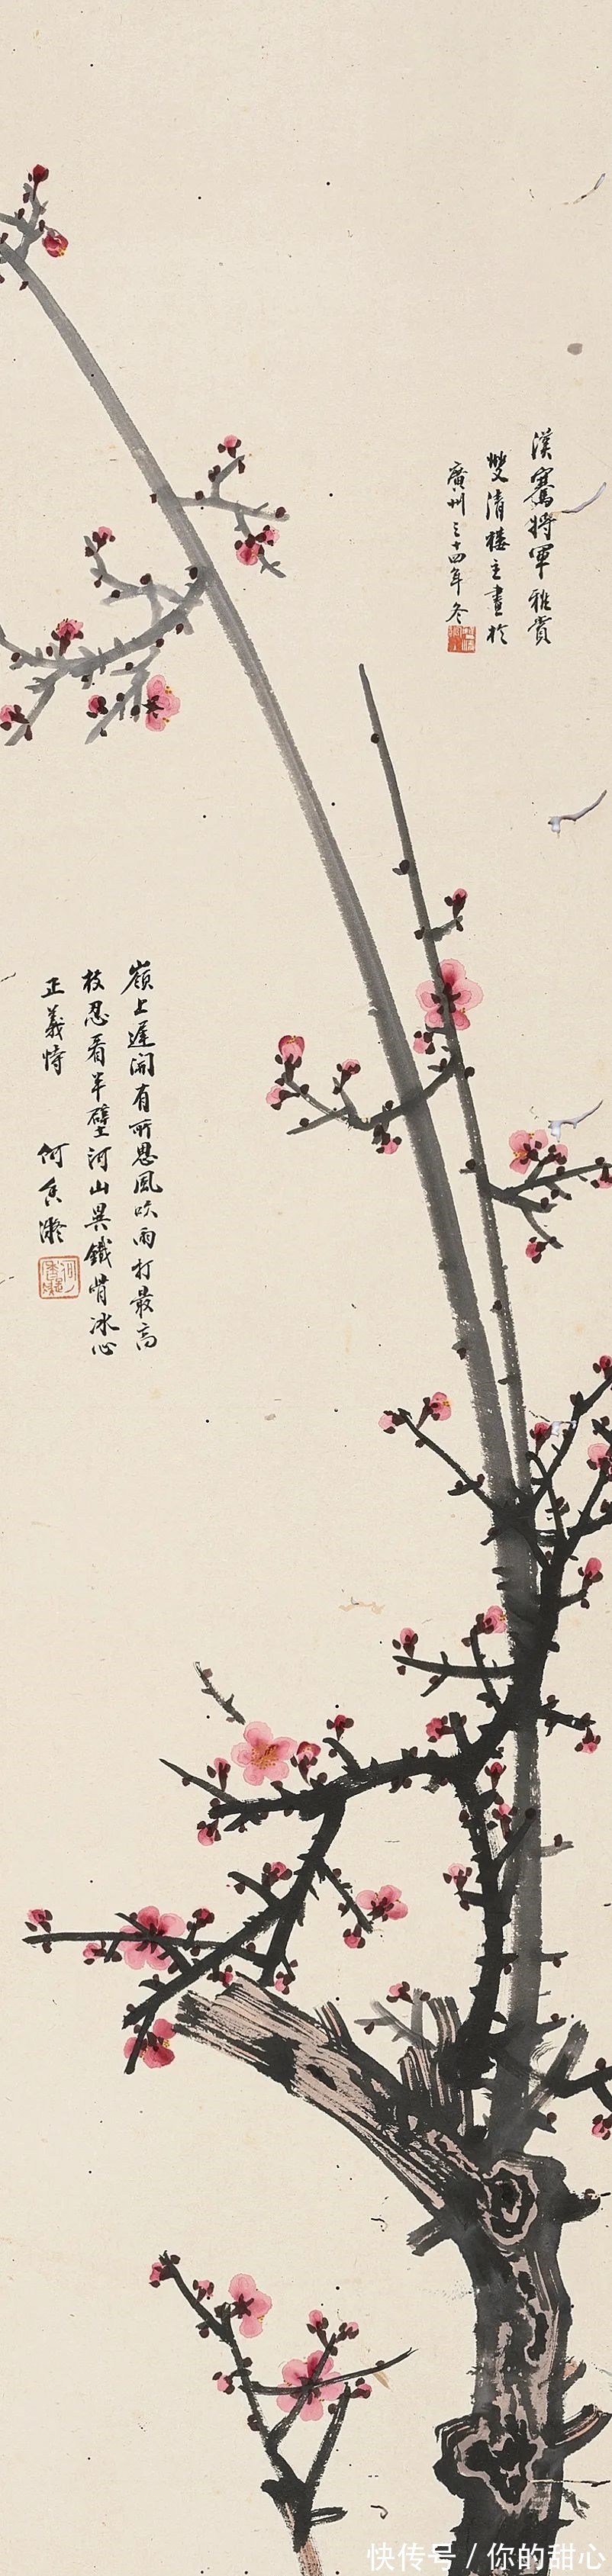 漢騫將軍雅賞
雙清樓主畫於
廣州三十四年冬
嶺上遲開有所思風吹雨打最高
枝忍看半壁河山異鐵骨冰心
正義恃
何香凝
快传号 / 你的甜心